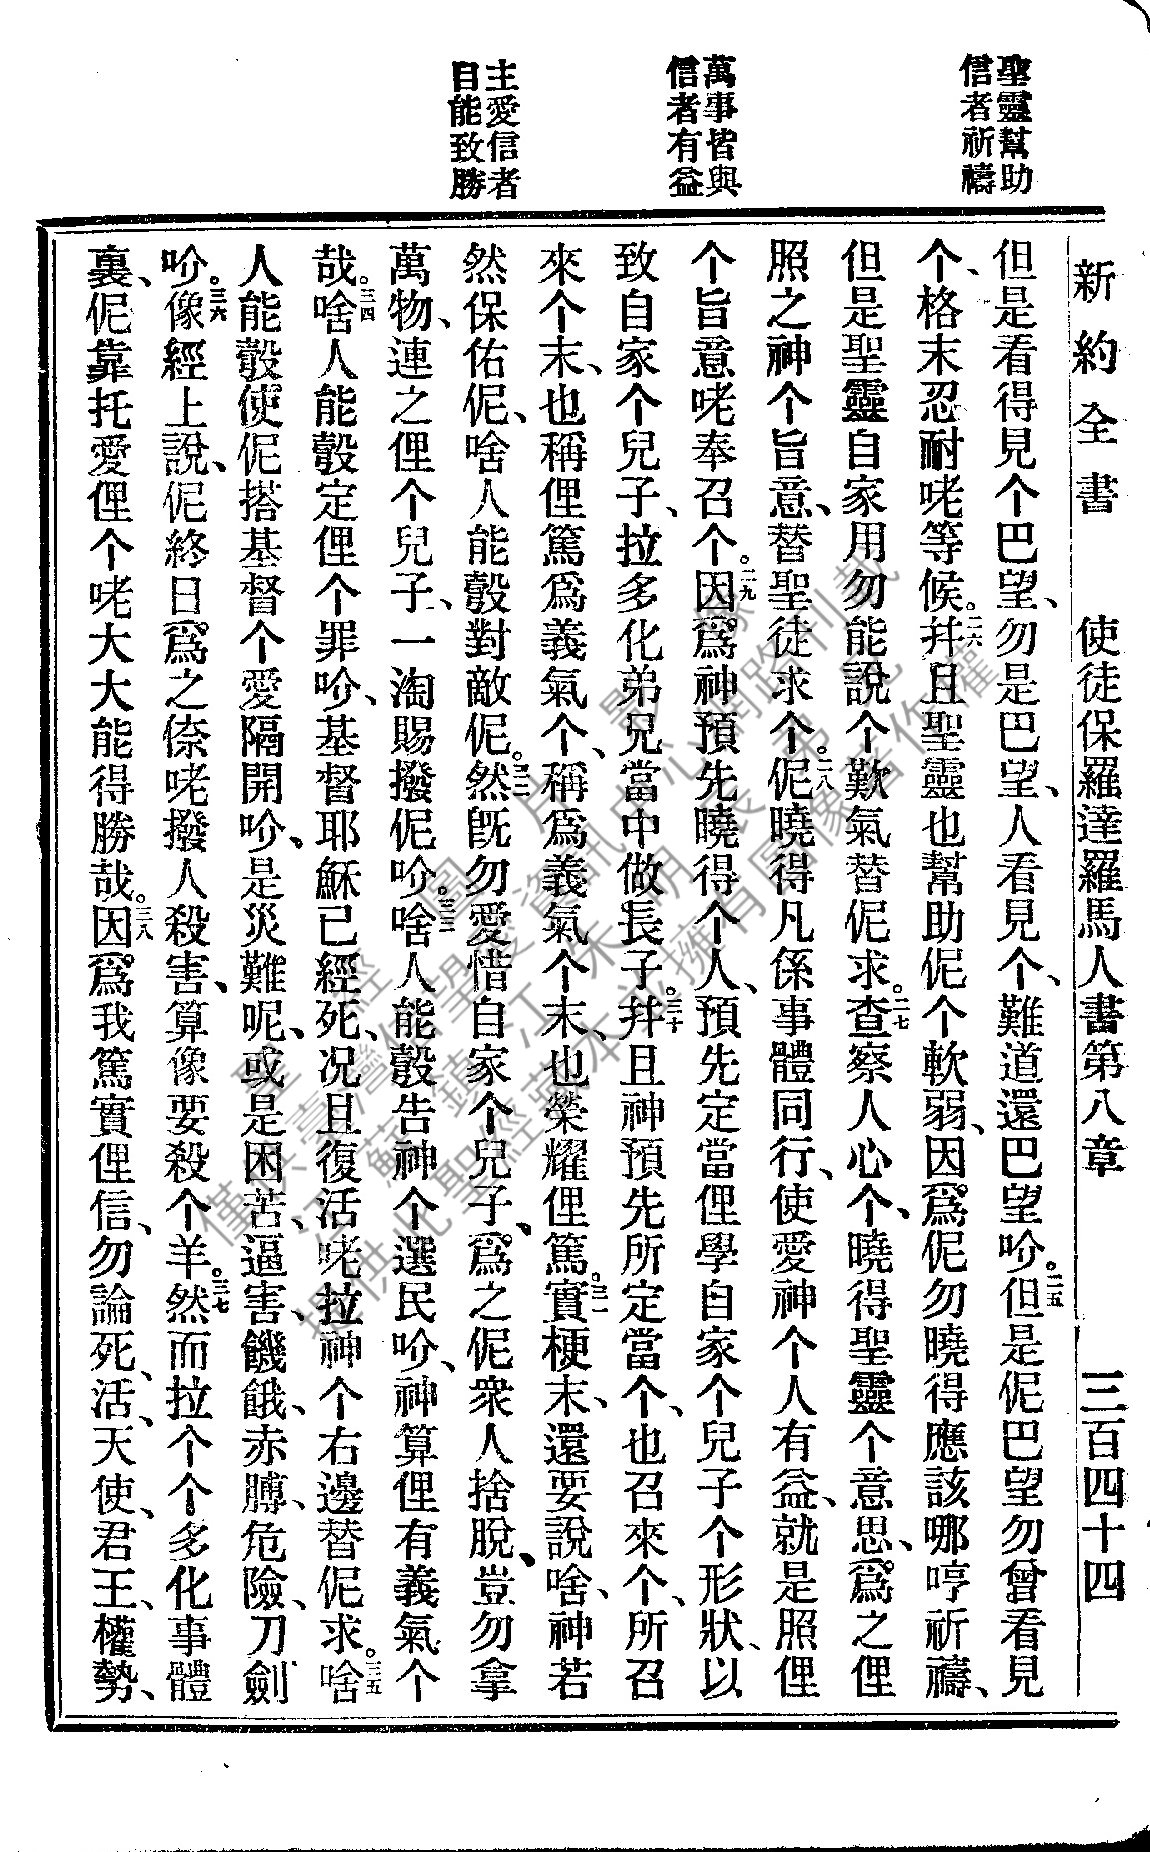 聖靈幫助
信者祈禱
萬事皆與
信者有益
主愛信者
自能致勝
新約全書 使徒保羅達羅馬人書第八章 三百四十四
但是看得見个巴望、勿是巴望、人看見个、難道還巴望吤。二五但是伲巴望勿曾看見
个、格末忍耐咾等候。二六幷且聖靈也幫助伲个軟弱、因爲伲勿曉得應該哪哼祈禱、
但是聖靈自家用勿能說个歎氣替伲求。二七查察人心个、曉得聖靈个意思、爲之俚
照之神个旨意、替聖徒求个。二八伲曉得凡係事體同行、使愛神个人有益、就是照俚
个旨意咾奉召个。二九因爲神預先曉得个人、預先定當俚學自家个兒子个形狀、以
致自家个兒子、拉多化弟兄當中做長子。三十幷且神預先所定當个、也召來个、所召
來个末、也稱俚篤爲義氣个、稱爲義氣个末、也榮耀俚篤。三一實梗末、還要說啥、神若
然保佑伲、啥人能彀對敵伲。三二然旣勿愛惜自家个兒子、爲之伲衆人捨脫、豈勿拿
萬物、連之俚个兒子、一淘賜撥伲吤。三三啥人能彀告神个選民吤、神算俚有義氣个
哉。三四啥人能彀定俚个罪吤、基督耶穌已經死、况且復活咾拉神个右邊替伲求。三五啥
人能彀使伲搭基督个愛隔開吤、是災難呢、或是困苦、逼害、饑餓、赤膊、危險、刀劍
吤。三六像經上說、伲終日爲之倷咾撥人殺害、算像要殺个羊。三七然而拉个个多化事體
裏、伲靠托愛俚个咾大大能得勝哉。三八因爲我篤實俚信、勿論死、活、天使、君王、權勢、
僅供臺灣信望愛資訊中心網路刊載